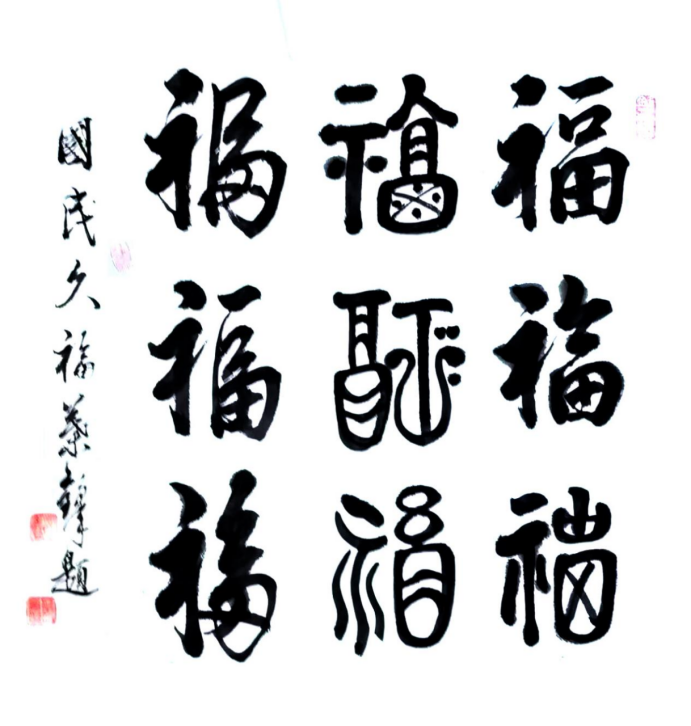 福福福
福福福
福福福
國民久福 題